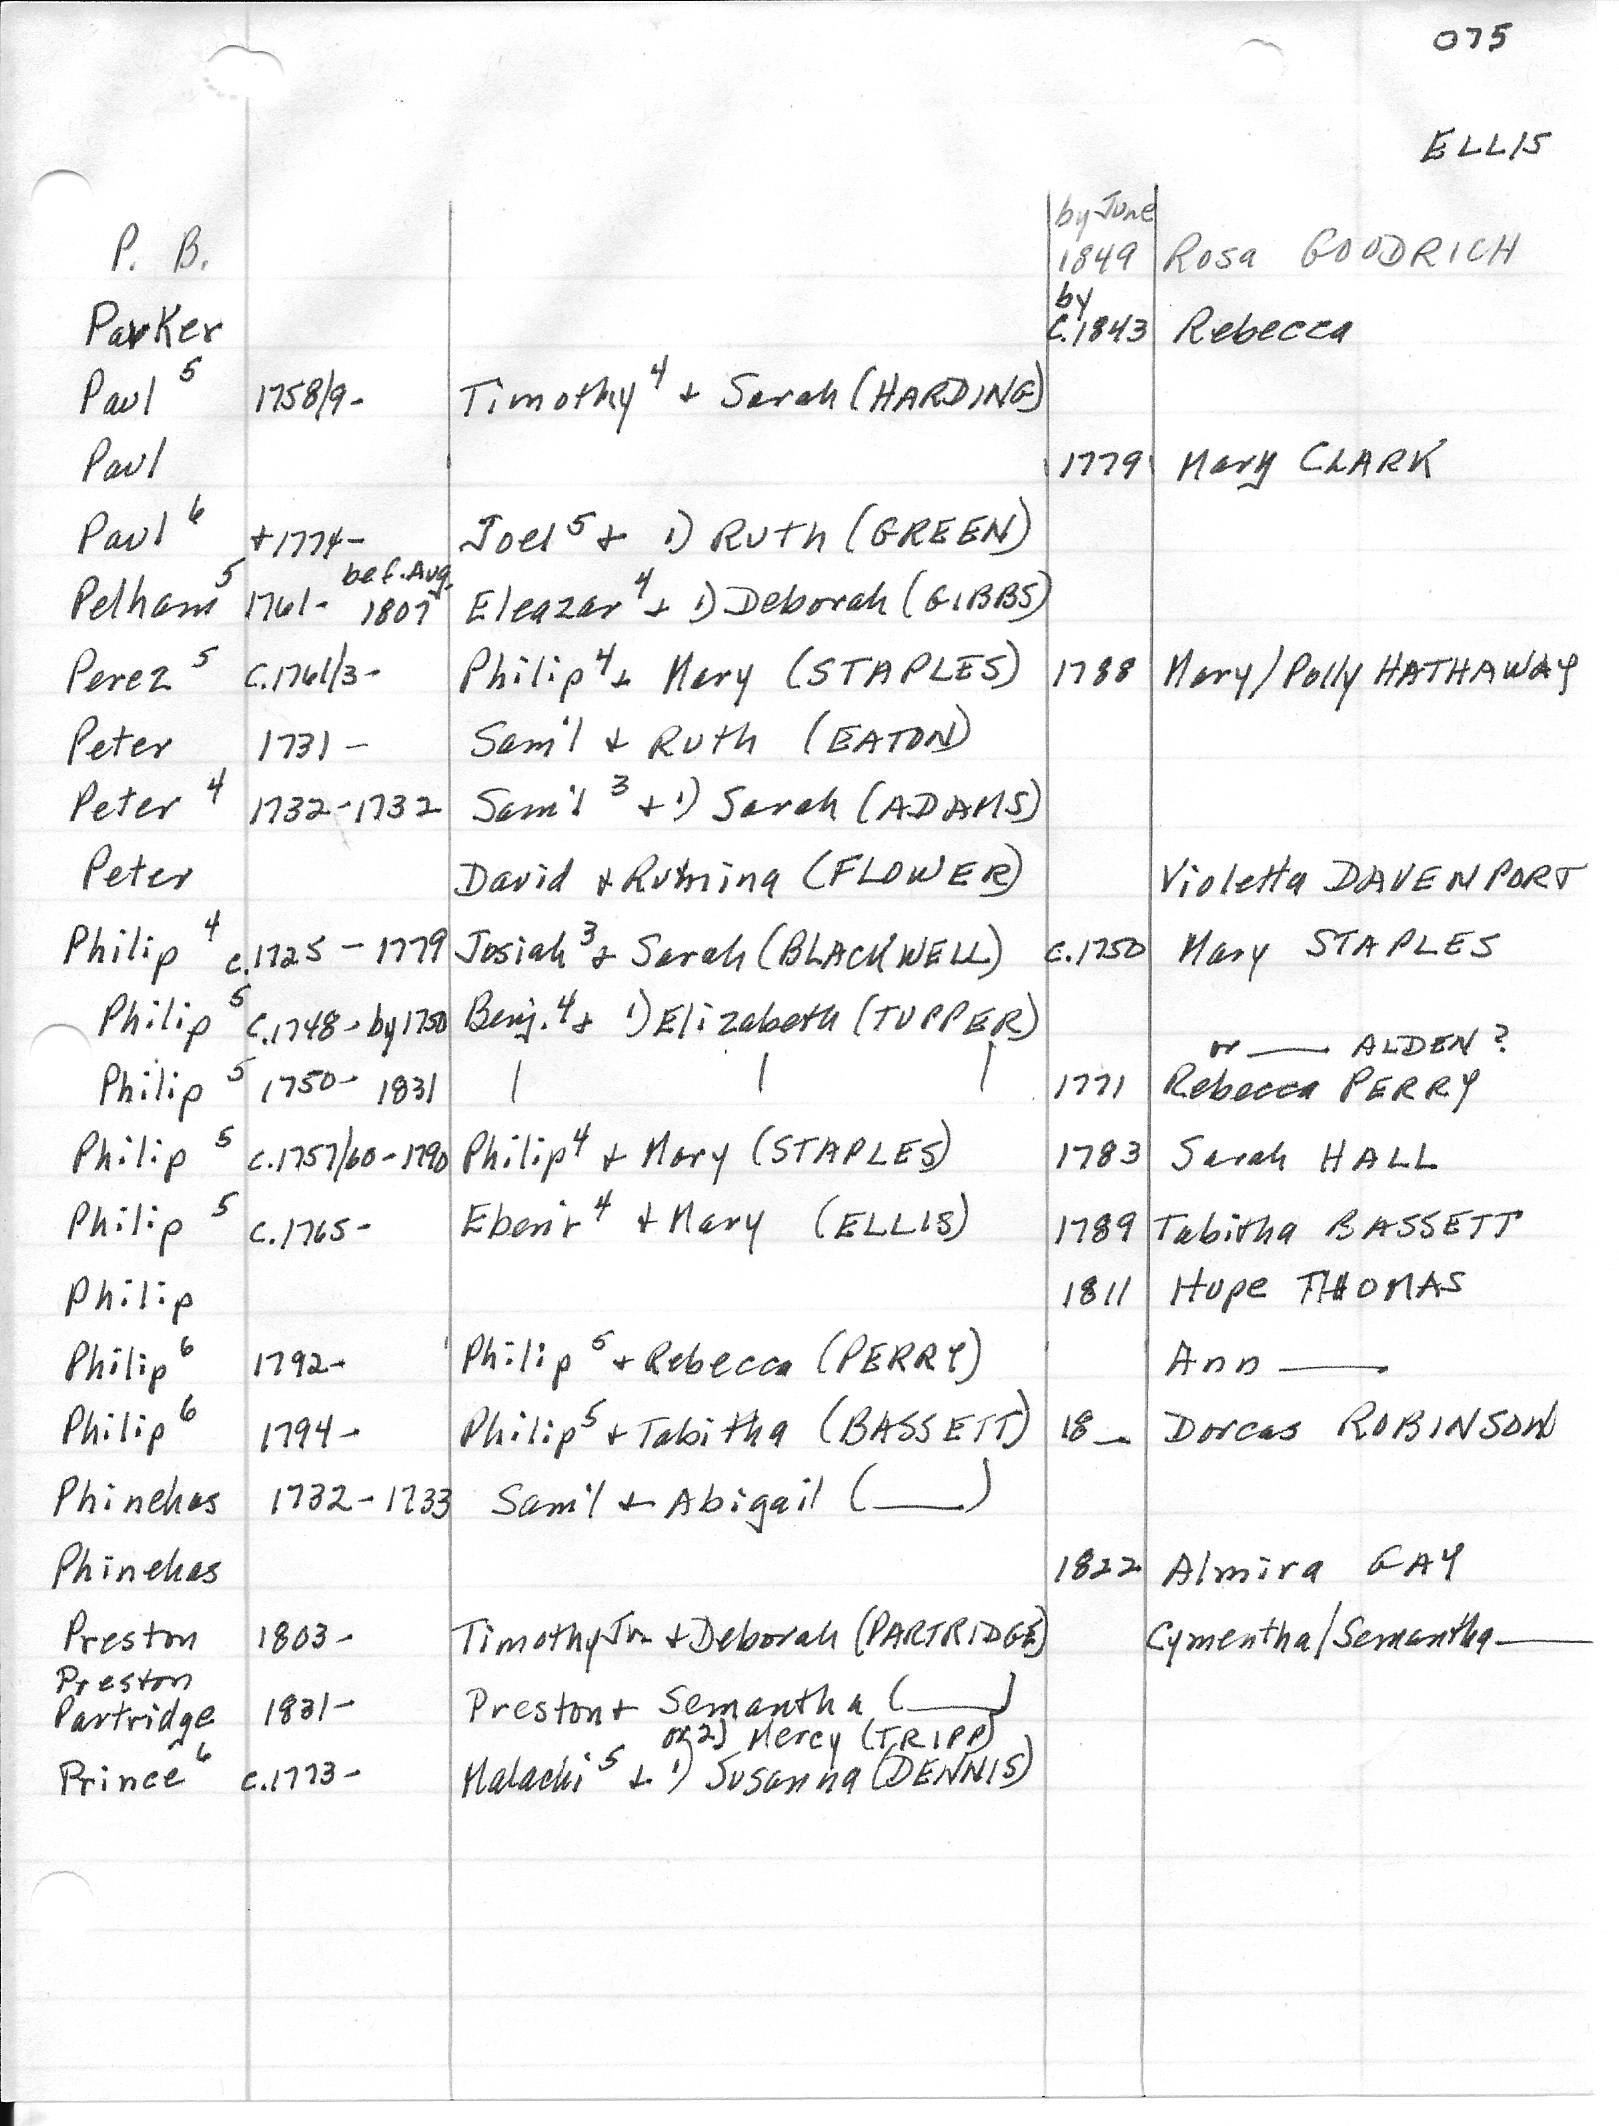 075
ELLIS
by June
P. B. 1849 Rosa GOODRICH
by
Parker c.1843 Rebecca
Paul 5 1758/9- Timothy 4 + Sarah (HARDING)
Paul 1779 Mary CLARK
Paul 6 +1774- Joel 5 + 1) Ruth (GREEN)
bef. Aug.
Pelham 5 1761- 1807 Eleazar 4 + 1) Deborah (GIBBS)
Perez 5 c.1761/3- Philip 4 + Mary (STAPLES) 1788 Mary/Polly HATHAWAY
Peter 1731- Sam'l + Ruth (EATON)
Peter 4 1732-1732 Sam'l 3 + 1) Sarah (ADAMS)
Peter David + (FLOWER) Violetta DAVENPORT
Philip 4 c.1725 - 1779 Josiah 3 + Sarah (BLACKWELL) c.1750 Mary STAPLES
Philip 5 c.1748-by 1750 Benj. 4 + 1) Elizabeth (TUPPER)
or —— ALDEN?
Philip 5 1750- 1831 | | | 1771 Rebecca PERRY
Philip 5 c.1757/60-1790 Philip 4 + Mary (STAPLES) 1783 Sarah HALL
Philip 5 c.1765- Eben'r 4 + Mary (ELLIS) 1789 Tabitha BASSETT
Philip 1811 Hope THOMAS
Philip 6 1792- Philip 5 + Rebecca (PERRY) Ann ——
Philip 6 1794- Philip 5 + Tabitha (BASSETT) 18— Dorcas ROBINSON
Phinehas 1732-1733 Sam'l + Abigail (——)
Phinehas 1822 Almira GAY
Preston 1803- Timothy Jr. + Deborah (PARTRIDGE) Cymentha/Semantha ——
Preston
Partridge 1831- Preston + Semantha (——)
or 2) Mercy (TRIPP)
Prince 6 c.1773- Malachi 5 + 1) Susanna (DENNIS)